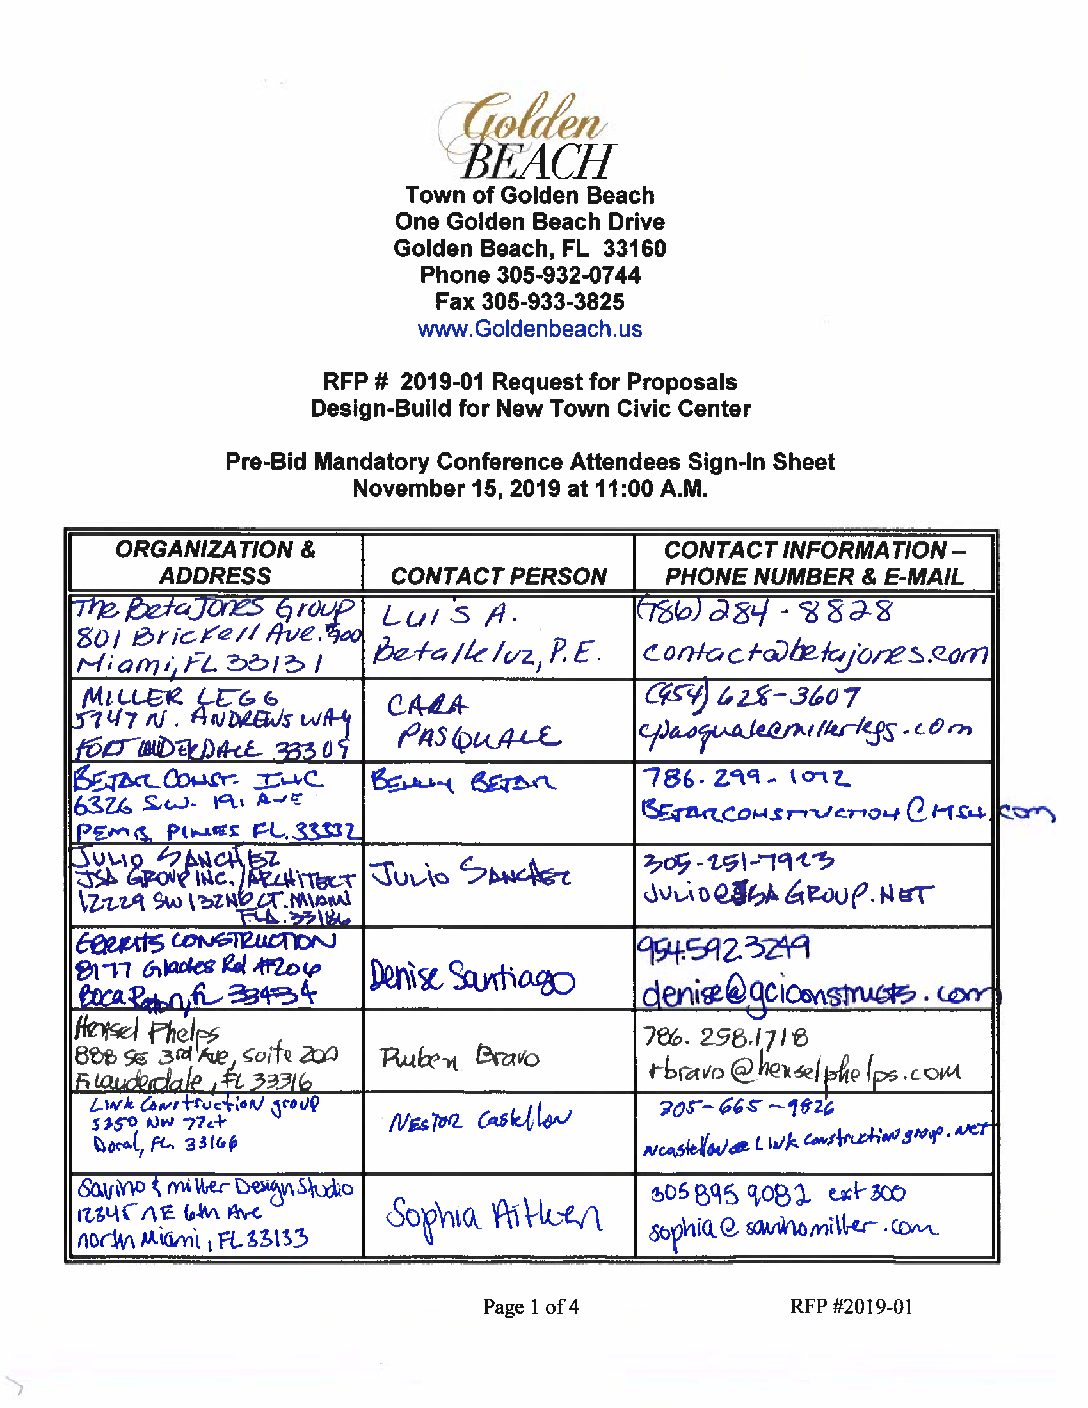 Golden
BEACH
Town of Golden Beach
One Golden Beach Drive
Golden Beach, FL 33160
Phone 305-932-0744
Fax 305-933-3825
www.Goldenbeach.us
RFP # 2019-01 Request for Proposals
Design-Build for New Town Civic Center
Pre-Bid Mandatory Conference Attendees Sign-In Sheet
November 15, 2019 at 11:00 A.M.
ORGANIZATION &
ADDRESS
CONTACT PERSON
CONTACT INFORMATION –
PHONE NUMBER & E-MAIL
The BetaJones Group
801 Brickell Ave. 
Miami, FL 33131
Luis A.
Betalleluz, P.E.
(786) 284-8828
contact@betajones.com
MILLER LEGG
5747 N. ANDREWS WAY
FORT LAUDERDALE 33309
CARA
PASQUALE
(954) 628-3607
cpasquale@millerlegg.com
BEJAR CONST. INC
6326 S.W. 191 AVE
PEMB. PINES FL. 33332
BENNY BEJAR
786-299-1012
BEJARCONSTRUCTION@MSN.com
JULIO SANCHEZ
JSA GROUP INC./ARCHITECT
12229 SW 132ND CT. MIAMI
FLA. 33186
JULIO SANCHEZ
305-251-7923
JULIO@JSAGROUP.NET
GERRITS CONSTRUCTION
8177 Glades Rd #206
BOCA Raton, FL 33434
Denise Santiago
954.592.3249
denise@gciconstructs.com
Hensel Phelps
888 SE 3rd Ave, Suite 200
Ft Lauderdale, FL 33316
Ruben Bravo
786.258.1718
rbravo@henselphelps.com
Link Construction group
5350 NW 77ct
Doral, FL 33166
NESTOR Castellon
305-665-9826
ncastellon@Linkconstructiongroup.NET
Savino & miller Design Studio
12345 NE 6th Ave
north Miami, FL 33133
Sophia Aitken
305 895 9082 ext 300
sophia@savinomiller.com
Page 1 of 4
RFP #2019-01